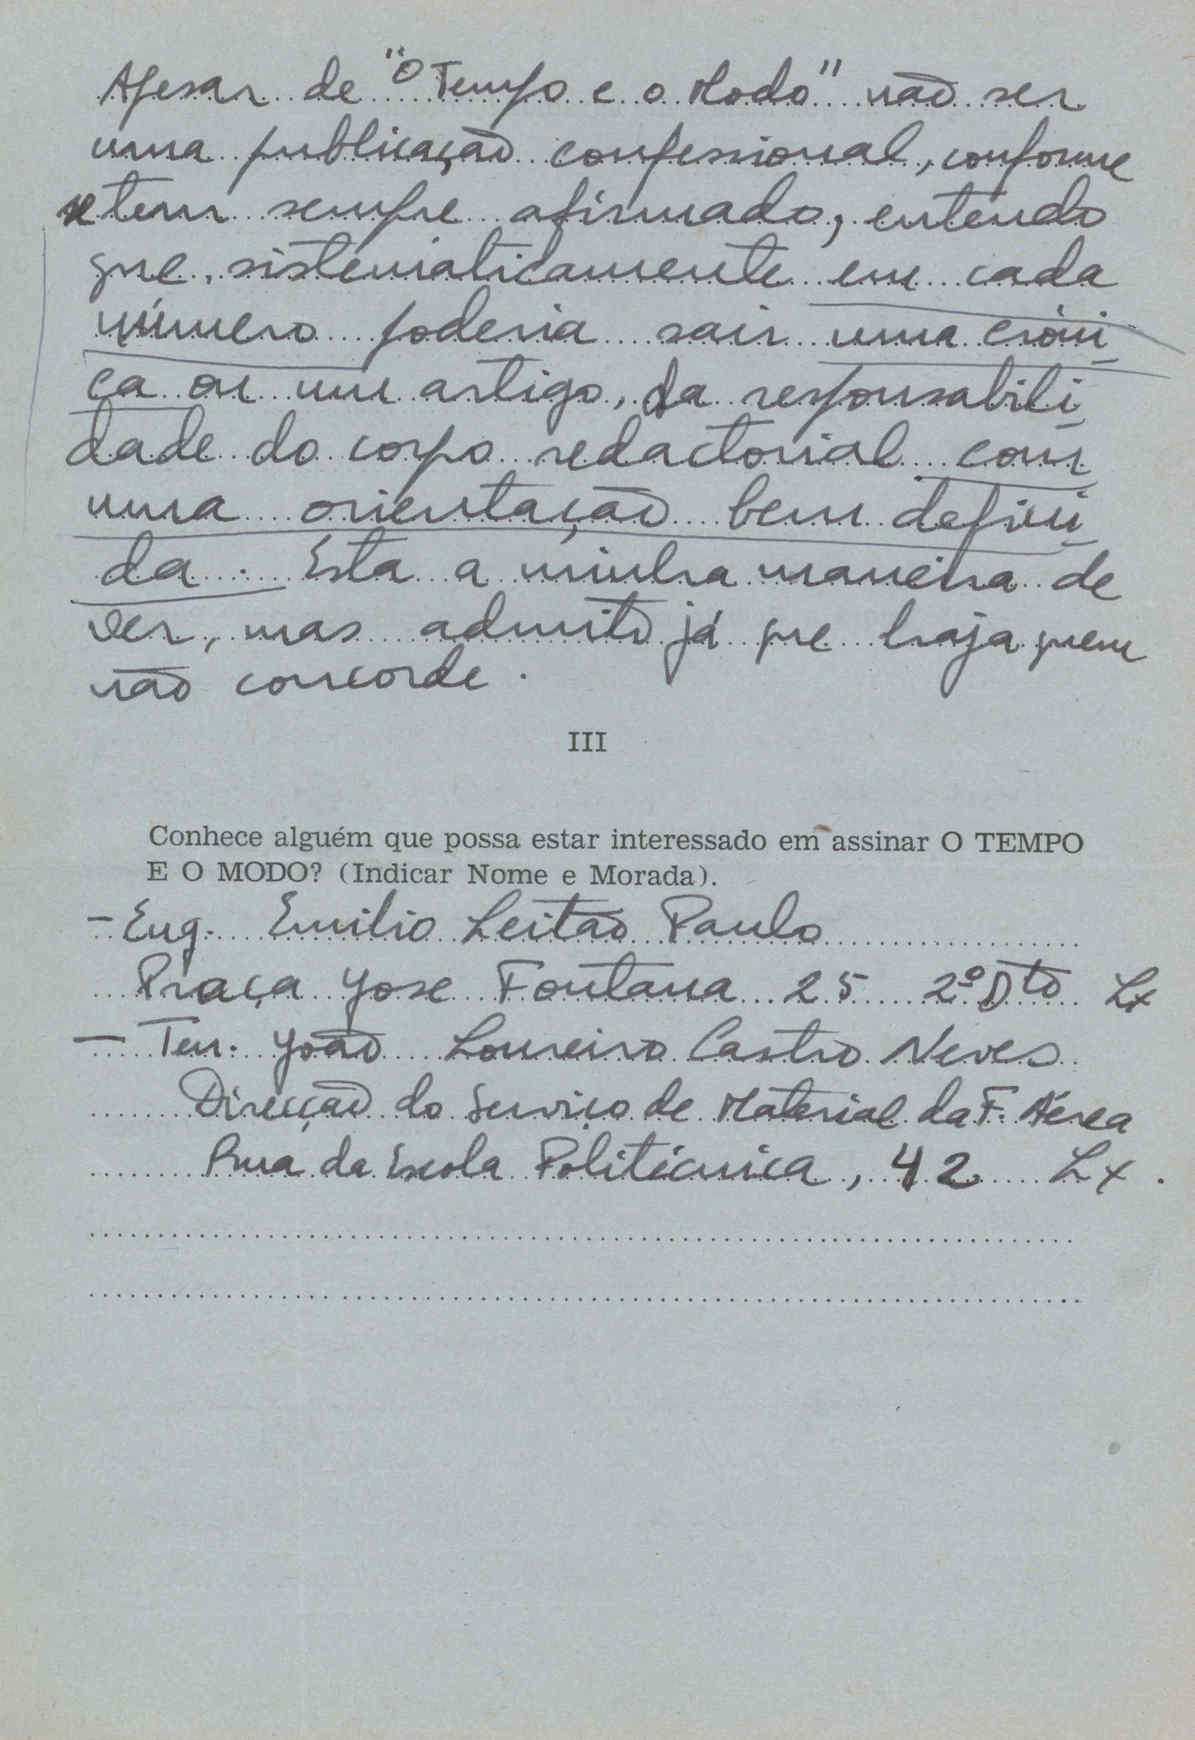 Apesar de "O Tempo e o Modo" não ser
uma publicação confessional, conforme
se tem sempre afirmado, entendo
que, sistematicamente em cada
número poderia sair uma cróni
ca ou um artigo, da responsabili
dade do corpo redactorial com
uma orientação bem defini
da. Esta a minha maneira de
ver, mas admito já que haja quem
não concorde.
III
Conhece alguém que possa estar interessado em assinar O TEMPO
E O MODO? (Indicar Nome e Morada).
- Eng. Emilio Leitão Paulo
Praça José Fontana 25 2º Dto Lx
- Ten. João Loureiro Castro Neves
Direcção do Serviço de Material da F. Aérea
Rua da Escola Politécnica, 42 Lx.